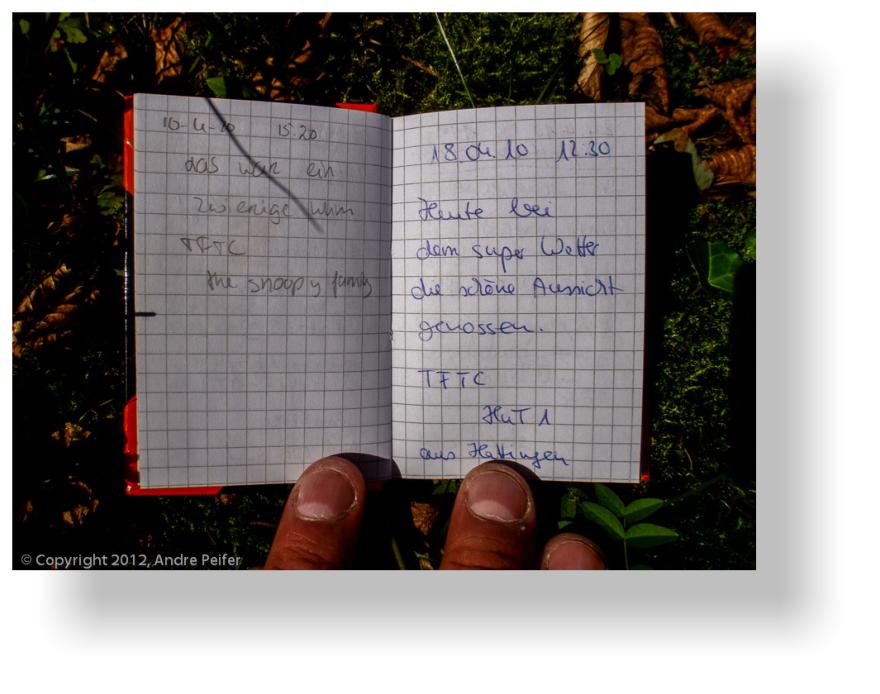 10-4-10 15.20
das war ein
TFTC
the snoopy family
18.04.10 12.30
Heute bei
dem super Wetter
die schöne Aussicht
genossen.
TFTC
HuT 1
aus Hattingen
© Copyright 2012, Andre Peifer